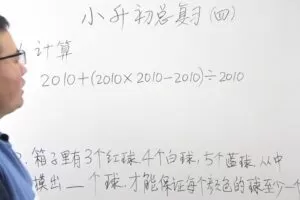 小升初总复习(四)
计算
2010+(2010×2010-2010)÷2010
箱子里有3个红球,4个白球,5个蓝球,从中
摸出__个球,才能保证每个颜色的球至少一个